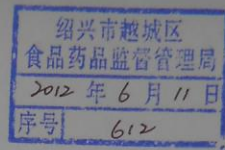 绍兴市越城区
食品药品监督管理局
2012 年 6 月 11 日
序号 612